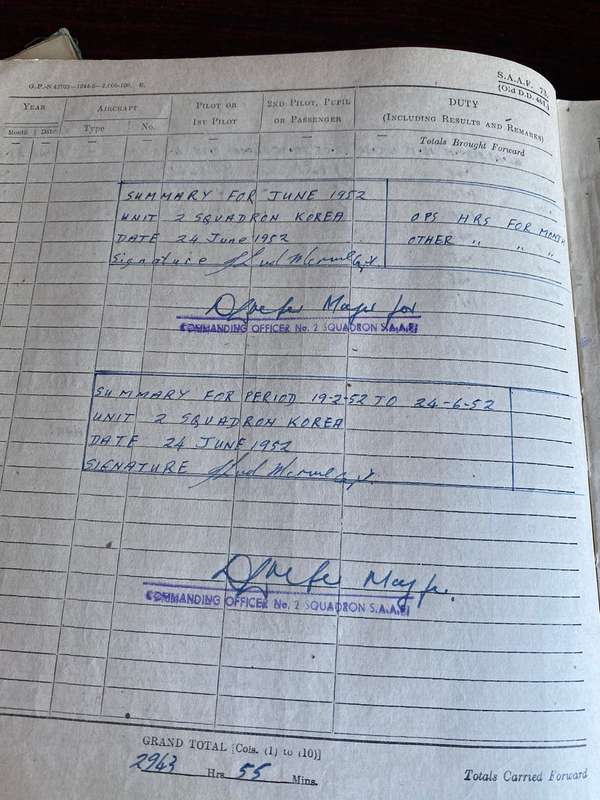 S.A.A.F. 73.
(Old D.D. 461.)
YEAR
AIRCRAFT
PILOT OR
1ST PILOT
2ND PILOT, PUPIL
OR PASSENGER
DUTY
(INCLUDING RESULTS AND REMARKS)
Month Date Type No.
Totals Brought Forward
SUMMARY FOR JUNE 1952
UNIT 2 SQUADRON KOREA OPS HRS FOR MONTH
DATE 24 June 1952 OTHER " " "
Signature
Major for
COMMANDING OFFICER No. 2 SQUADRON S.A.A.F.
SUMMARY FOR PERIOD 19-2-52 TO 24-6-52
UNIT 2 SQUADRON KOREA
DATE 24 JUNE 1952
SIGNATURE
COMMANDING OFFICER No. 2 SQUADRON S.A.A.F.
GRAND TOTAL [Cols. (1) to (10)]
2943 Hrs 55 Mins.
Totals Carried Forward